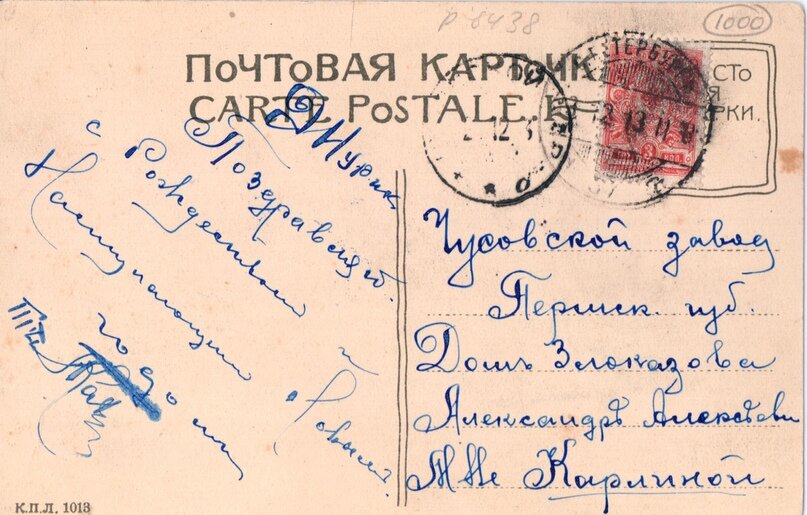 Р 8438
1000
ПОЧТОВАЯ КАРТ
CARTE POSTALE.
С.ПЕТЕРБУРГ
12 13 11
3
Поздравляю
с Рождеством и
Наступающим Новым
годом
Чусовской завод
Пермск. губ.
Домъ Злоказова
Александрѣ Алексѣевнѣ
Mme Карлиной
К.П.Л. 1013